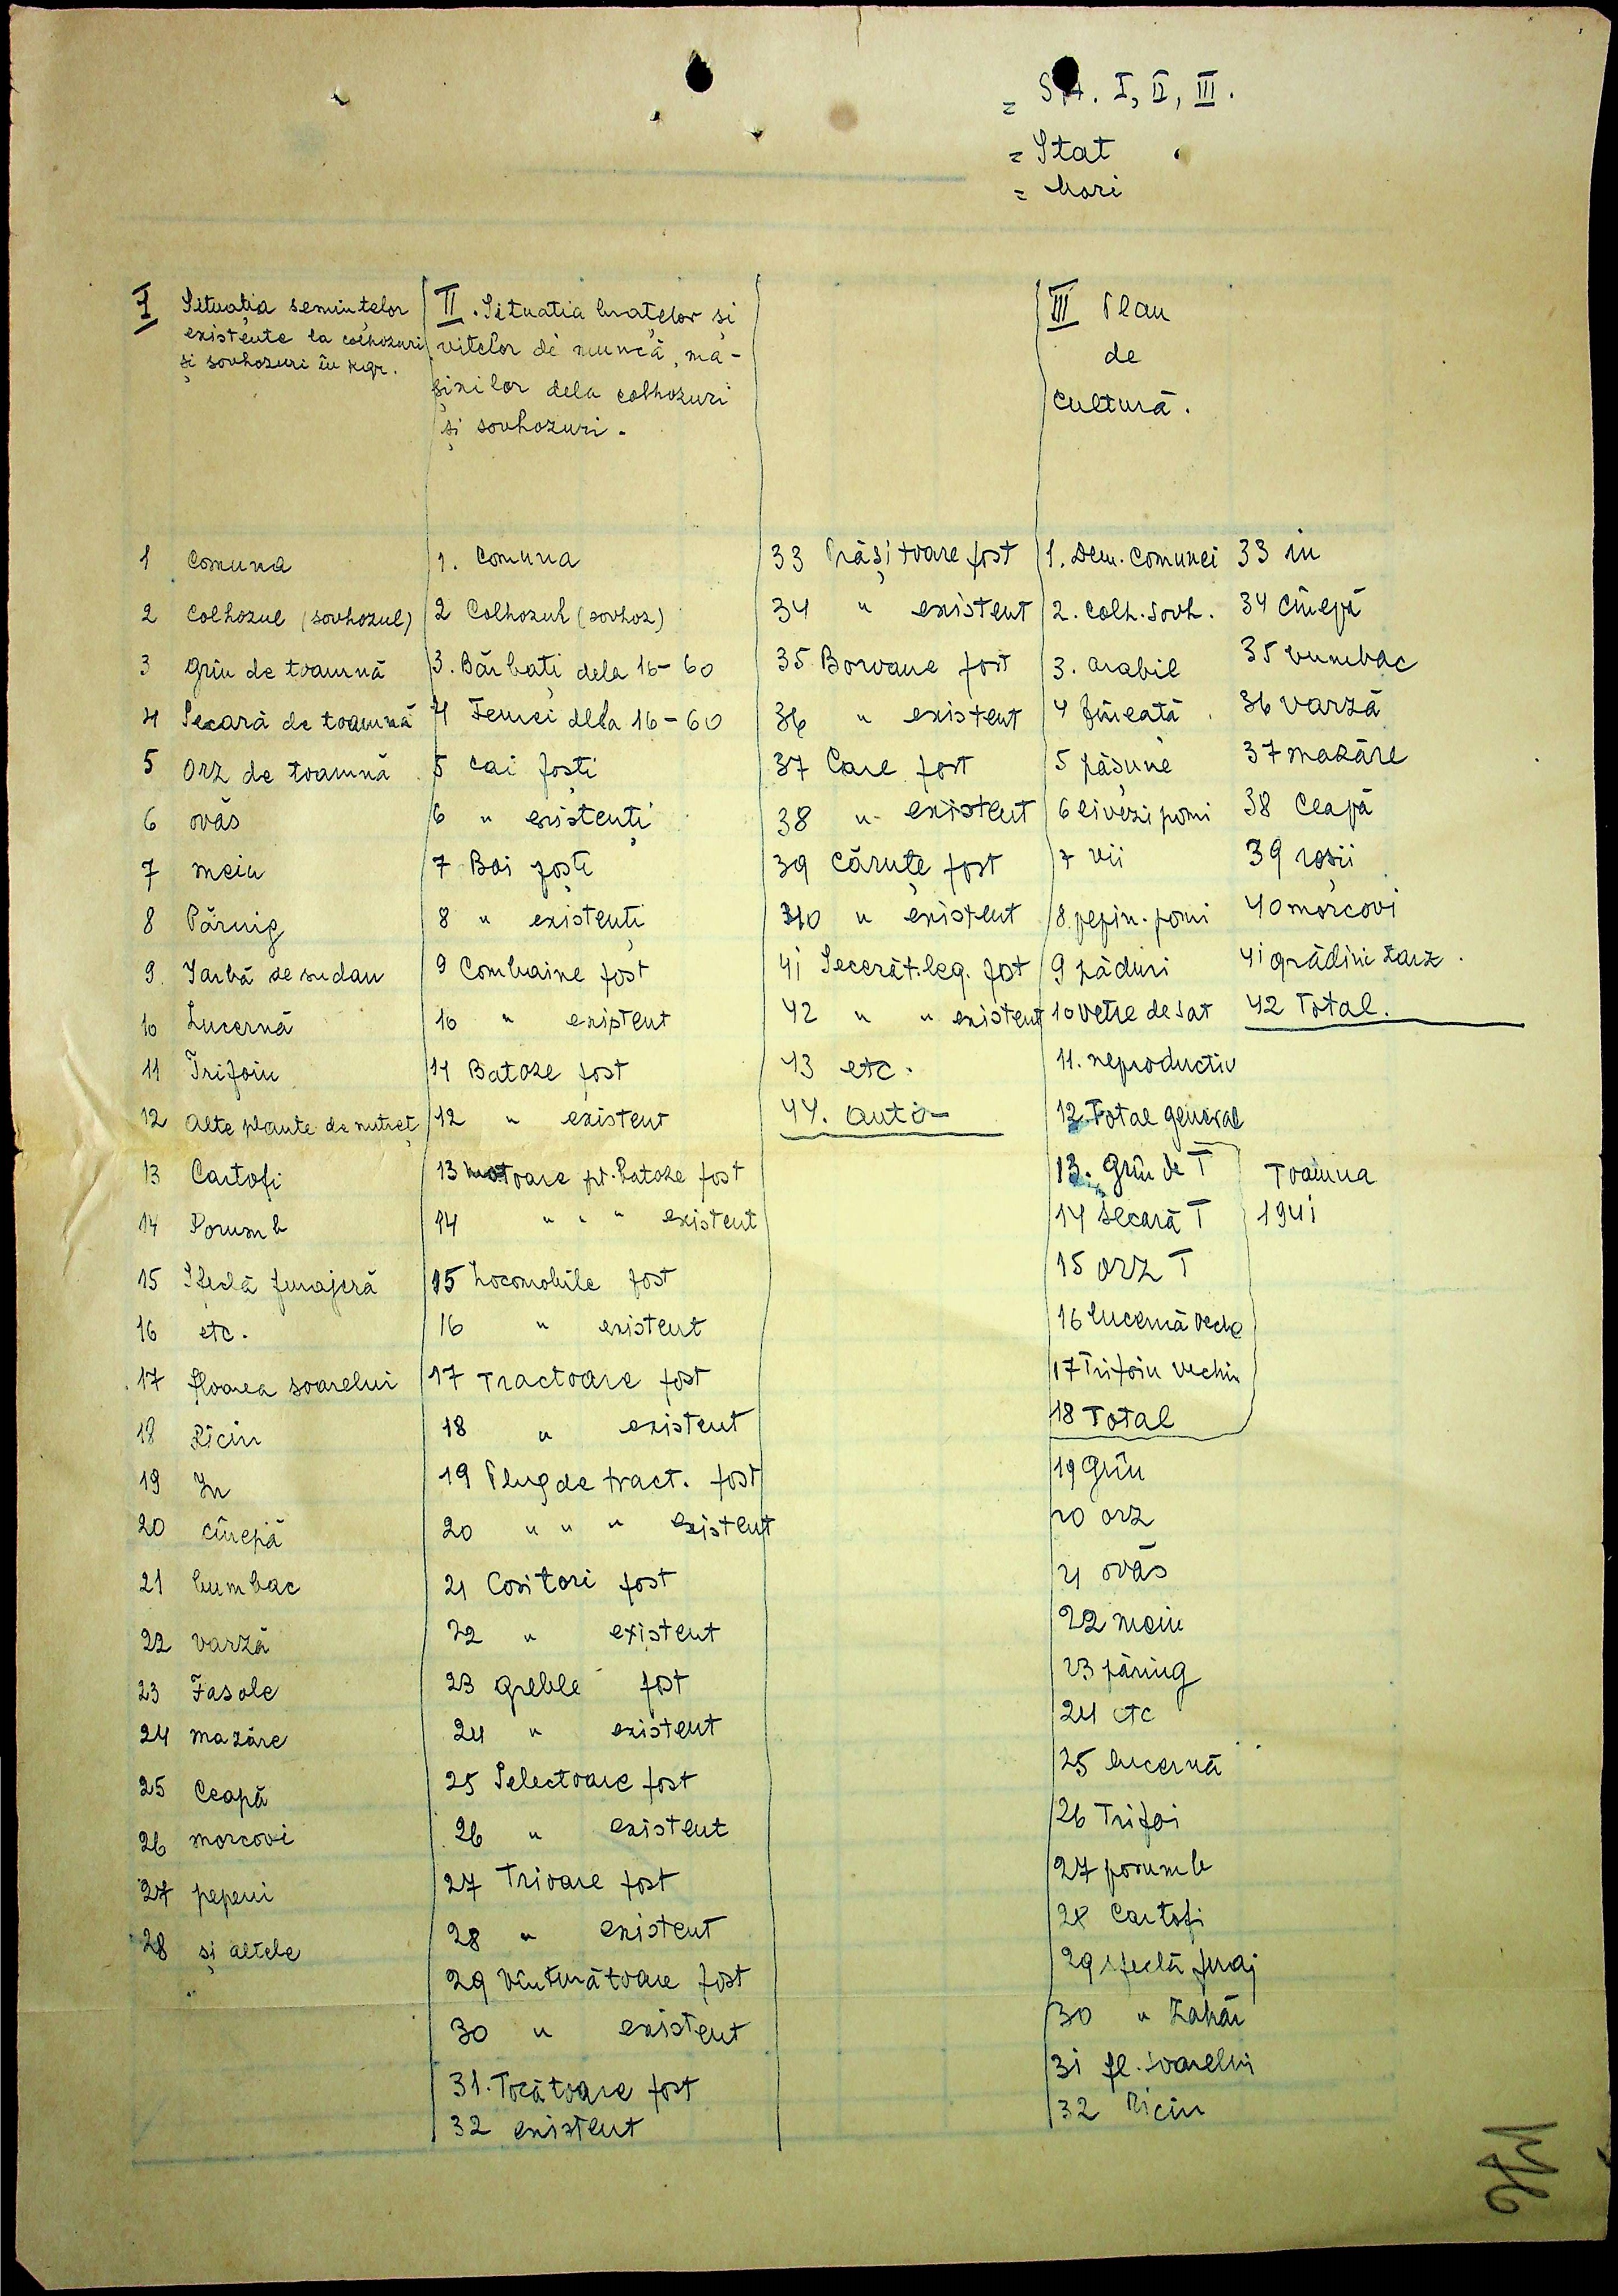 = Sit. I, II, III.
= Stat
= hori
I Situația semințelor
existente la colhozuri
și sovhozuri în kgr.
1 Comuna
2 Colhozul (sovhozul)
3 Grîu de toamnă
4 Secară de toamnă
5 Orz de toamnă
6 ovăs
7 meiu
8 Păring
9. Iarbă de sudan
10 Lucernă
11 Trifoiu
12 Alte plante de nutreț
13 Cartofi
14 Porumb
15 Sfeclă furajeră
16 etc.
17 floarea soarelui
18 Ricin
19 In
20 cînepă
21 bumbac
22 varză
23 Fasole
24 mazăre
25 Ceapă
26 morcovi
27 pepeni
28 și altele
II. Situatia brațelor și
vitelor de muncă, ma-
șinilor dela colhozuri
și sovhozuri.
1. Comuna
2 Colhozul (sovhoz)
3. Bărbați dela 16-60
4 Femei dela 16-60
5 cai foști
6 " existenți
7 Boi foști
8 " existenți
9 Combaine fost
10 " existent
11 Batoze fost
12 " existent
13 motoare pt. batoze fost
14 " " " existent
15 Locomobile fost
16 " existent
17 Tractoare fost
18 " existent
19 Plug de tract. fost
20 " " " existent
21 Cositori fost
22 " existent
23 greble fost
24 " existent
25 Selectoare fost
26 " existent
27 Trioare fost
28 " existent
29 Vînturătoare fost
30 " existent
31. Tocătoare fost
32 existent
33 Prășitoare fost
34 " existent
35 Boroane fost
36 " existent
37 Care fost
38 " existent
39 Cărute fost
40 " existent
41 Secerăt.leg. fost
42 " " existent
43 etc.
44. auto-
III Plan
de
cultură.
1. Dem. comunei
2. colh. sovh.
3. arabil
4 fîneată
5 pășune
6 livezi pomi
7 vii
8. pepin. pomi
9 păduri
10 vetre de sat
11. neproductiv
12. Total general
13. Grîu de T
14 secară T
15 orz T
16 lucernă veche
17 Trifoiu vechiu
18 Total
Toamna
1941
19 Grîu
20 orz
21 ovăs
22 meiu
23 păring
24 etc
25 lucernă
26 Trifoi
27 porumb
28 Cartofi
29 sfeclă furaj
30 " Zahăr
31 fl. soarelui
32 Ricin
33 in
34 cînepă
35 bumbac
36 varză
37 mazăre
38 Ceapă
39 rosii
40 morcovi
41 grădini zarz.
42 Total.